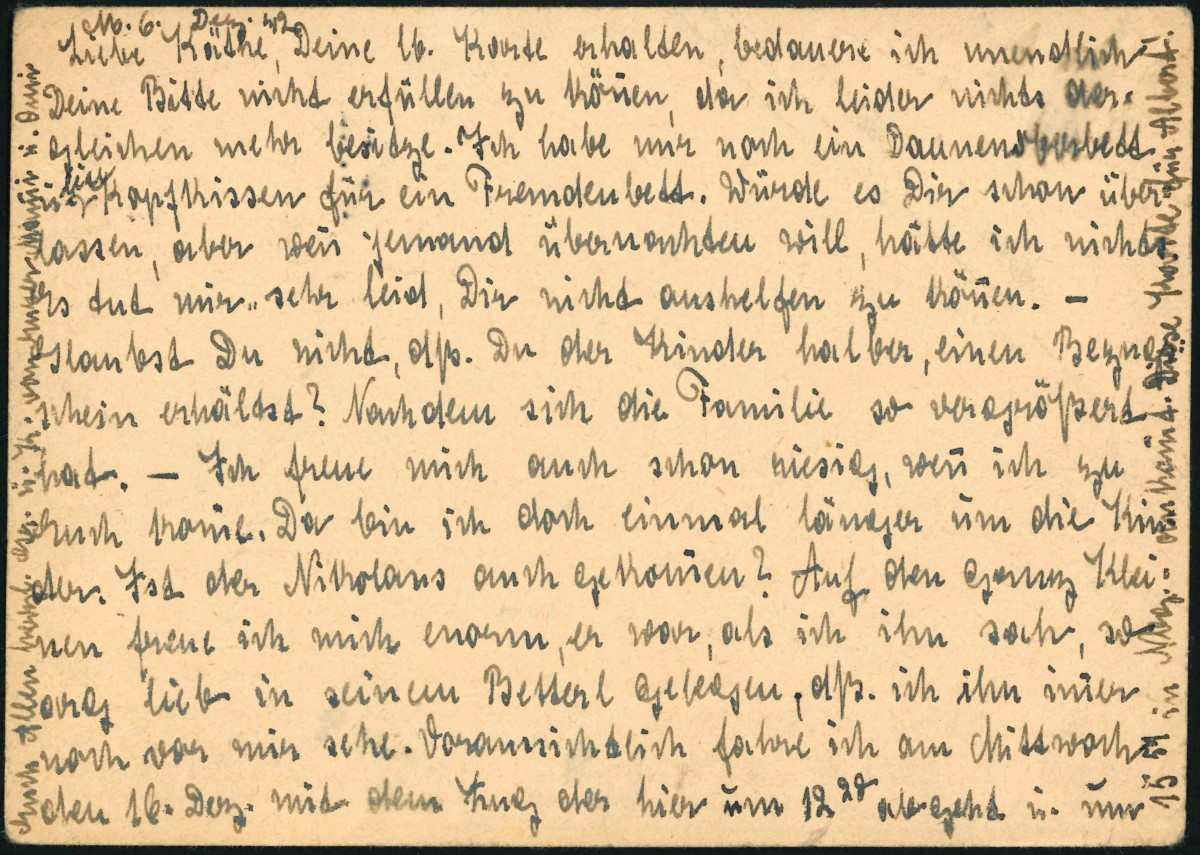 M. 6. Dez. 42
Liebe Käthe, Deine lb. Karte erhalten, bedauere ich unendlich
Deine Bitte nicht erfüllen zu kön̄en, da ich leider nichts der-
gleichen mehr besitze. Ich habe nur noch ein Daunenoberbett
u. Kopfkissen für ein Fremdenbett. Würde es Dir schon über-
lassen, aber wen̄ jemand übernachten will, hätte ich nichts
Es tut mir sehr leid, Dir nicht aushelfen zu kön̄en. —
Glaubst Du nicht, dß. Du der Kinder halber, einen Bezug-
schein erhältst? Nachdem sich die Familie so vergrößert
hat. — Ich freue mich auch schon riesig, wen̄ ich zu
Euch kom̄e. Da bin ich doch einmal länger um die Kin-
der. Ist der Nikolaus auch gekom̄en? Auf den ganz Klei-
nen freue ich mich enorm, er war, als ich ihn sah, so
arg lieb in seinem Betterl gelegen, dß. ich ihn im̄er
noch vor mir sehe. Voraussichtlich fahre ich am Mittwoch
den 16. Dez. mit dem Zug der hier um 12 20 abgeht u. um
15 51 in Mkg. ankom̄t. Diese Karte für Abhol.
Euch Allen herzl. Gr. u. K. von Mami u. Omi